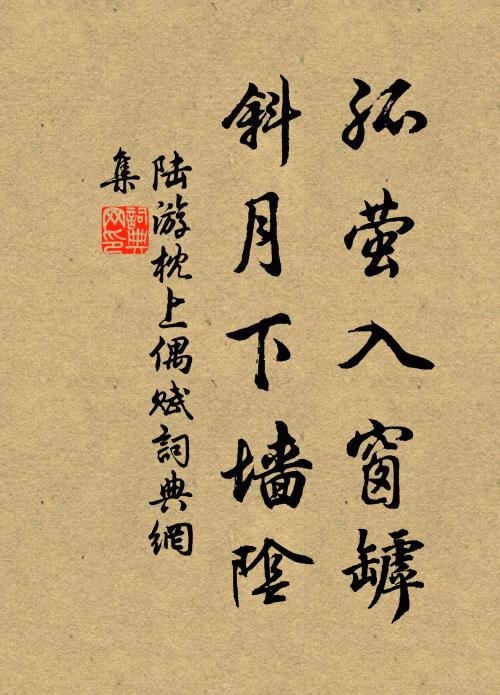 孤萤入窗罅
斜月下墙陰
陆游枕上偶赋詞典網
集
詞典网印